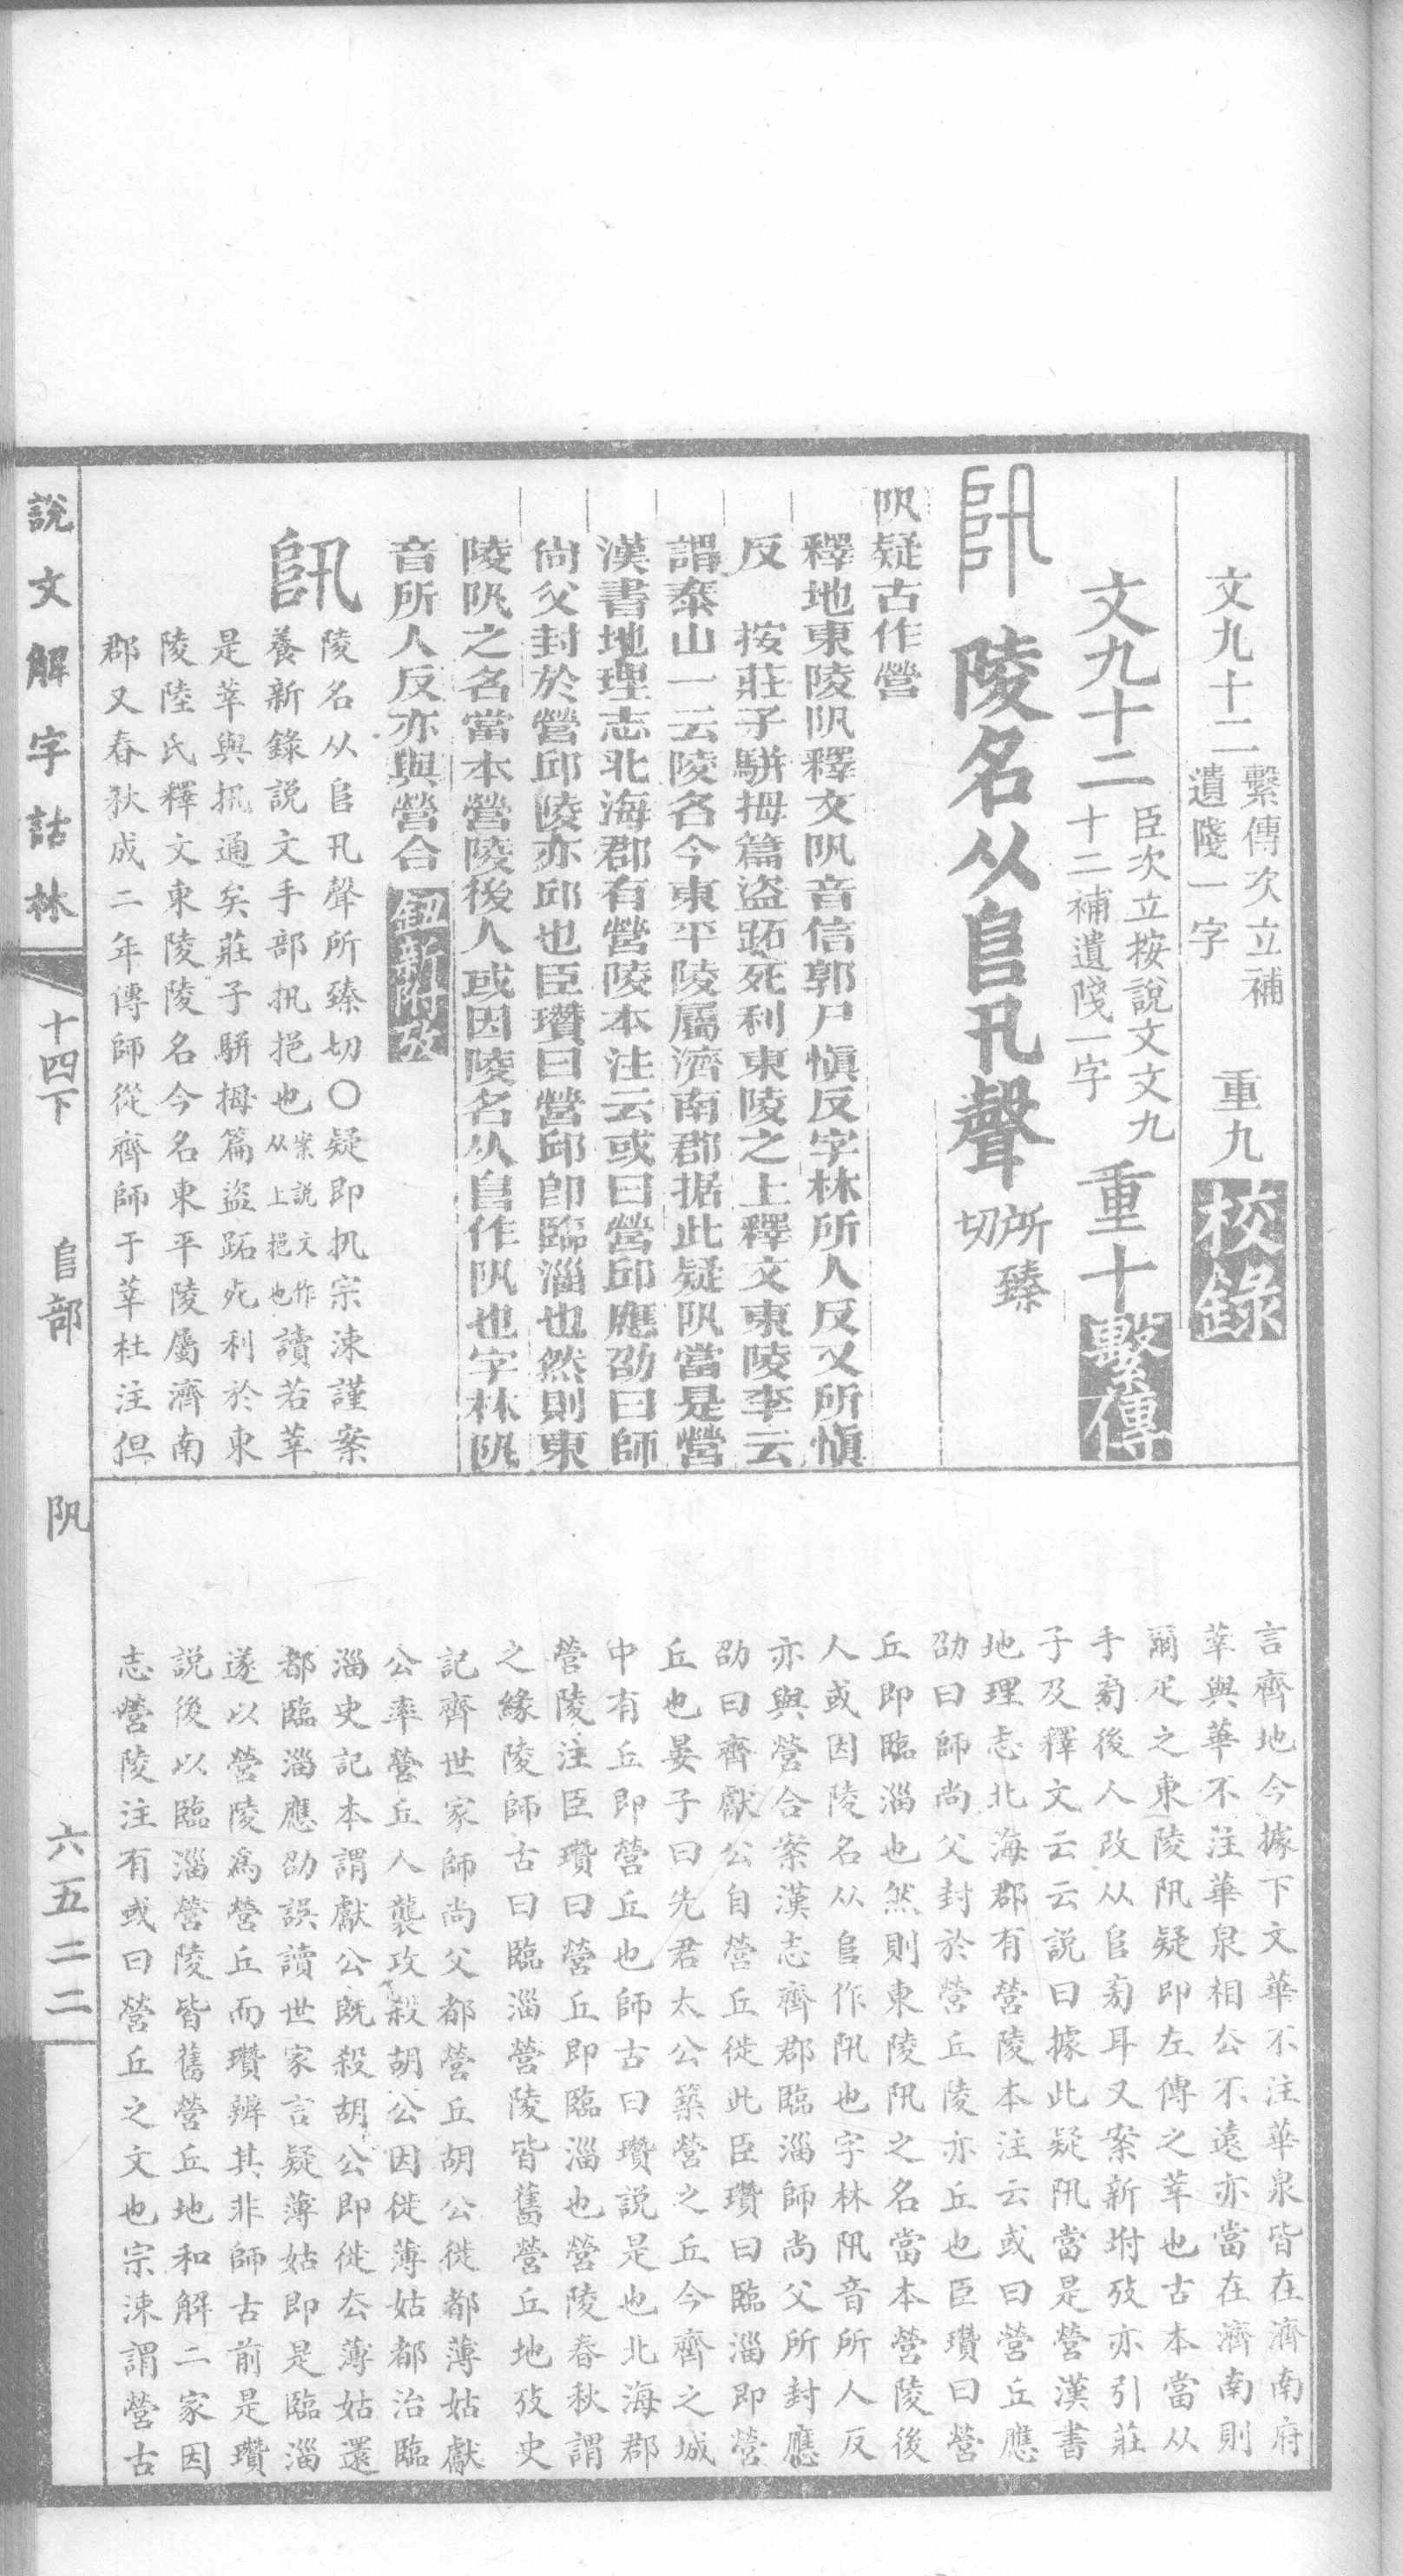 文九十二 繫傳次立補遺隓一字 重九 校錄
文九十二 臣次立按說文文九十二補遺隓一字 重十 繫傳
陵名从𨸏卂聲 所臻切
阠疑古作營
釋地東陵阠釋文阠音信郭尸愼反字林所人反又所愼
反 按莊子駢拇篇盜跖死利東陵之上釋文東陵李云
謂泰山一云陵名今東平陵屬濟南郡据此疑阠當是營
漢書地理志北海郡有營陵本注云或曰營邱應劭曰師
尙父封於營邱陵亦邱也臣瓚曰營邱卽臨淄也然則東
陵阠之名當本營陵後人或因陵名从𨸏作阠也字林阠
音所人反亦與營合 鈕新附攷
陵名从𨸏卂聲所臻切○疑即扟宗涑謹案
養新錄説文手部扟挹也案説文作从上挹也讀若莘
是莘與扟通矣莊子駢拇篇盜跖死利於東
陵陸氏釋文東陵陵名今名東平陵屬濟南
郡又春秋成二年傳師從齊師于莘杜注但
言齊地今據下文華不注華泉皆在濟南府
莘與華不注華泉相公不遠亦當在濟南則
爾疋之東陵阠疑即左傳之莘也古本當从
手㫄後人改从𨸏㫄耳又案新坿攷亦引莊
子及釋文云云説曰據此疑阠當是營漢書
地理志北海郡有營陵本注云或曰營丘應
劭曰師尚父封於營丘陵亦丘也臣瓚曰營
丘即臨淄也然則東陵阠之名當本營陵後
人或因陵名从𨸏作阠也字林阠音所人反
亦與營合案漢志齊郡臨淄師尚父所封應
劭曰齊獻公自營丘徙此臣瓚曰臨淄即營
丘也晏子曰先君太公築營之丘今齊之城
中有丘即營丘也師古曰瓚説是也北海郡
營陵注臣瓚曰營丘即臨淄也營陵春秋謂
之緣陵師古曰臨淄營陵皆舊營丘地攷史
記齊世家師尚父都營丘胡公徙都薄姑獻
公率營丘人襲攻殺胡公因徙薄姑都治臨
淄史記本謂獻公既殺胡公即徙厺薄姑還
都臨淄應劭誤讀世家言疑薄姑即是臨淄
遂以營陵爲營丘而瓚辨其非師古前是瓚
説後以臨淄營陵皆舊營丘地和解二家因
志營陵注有或曰營丘之文也宗涑謂營古
說文解字詁林 十四下 𨸏部 阠 六五二二